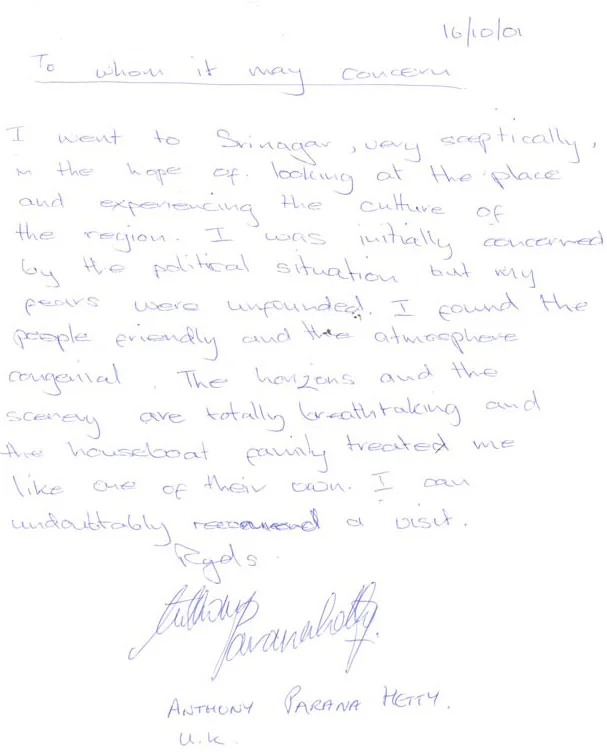 16/10/01
To whom it may concern
I went to Srinagar, very sceptically,
in the hope of looking at the place
and experiencing the culture of
the region. I was initially concerned
by the political situation but my
fears were unfounded. I found the
people friendly and the atmosphere
congenial. The horizons and the
scenery are totally breathtaking and
the houseboat family treated me
like one of their own. I can
undoubtably recommend a visit.
Rgds.
Anthony
Paranahetty.
ANTHONY PARANA HETTY.
U.K.